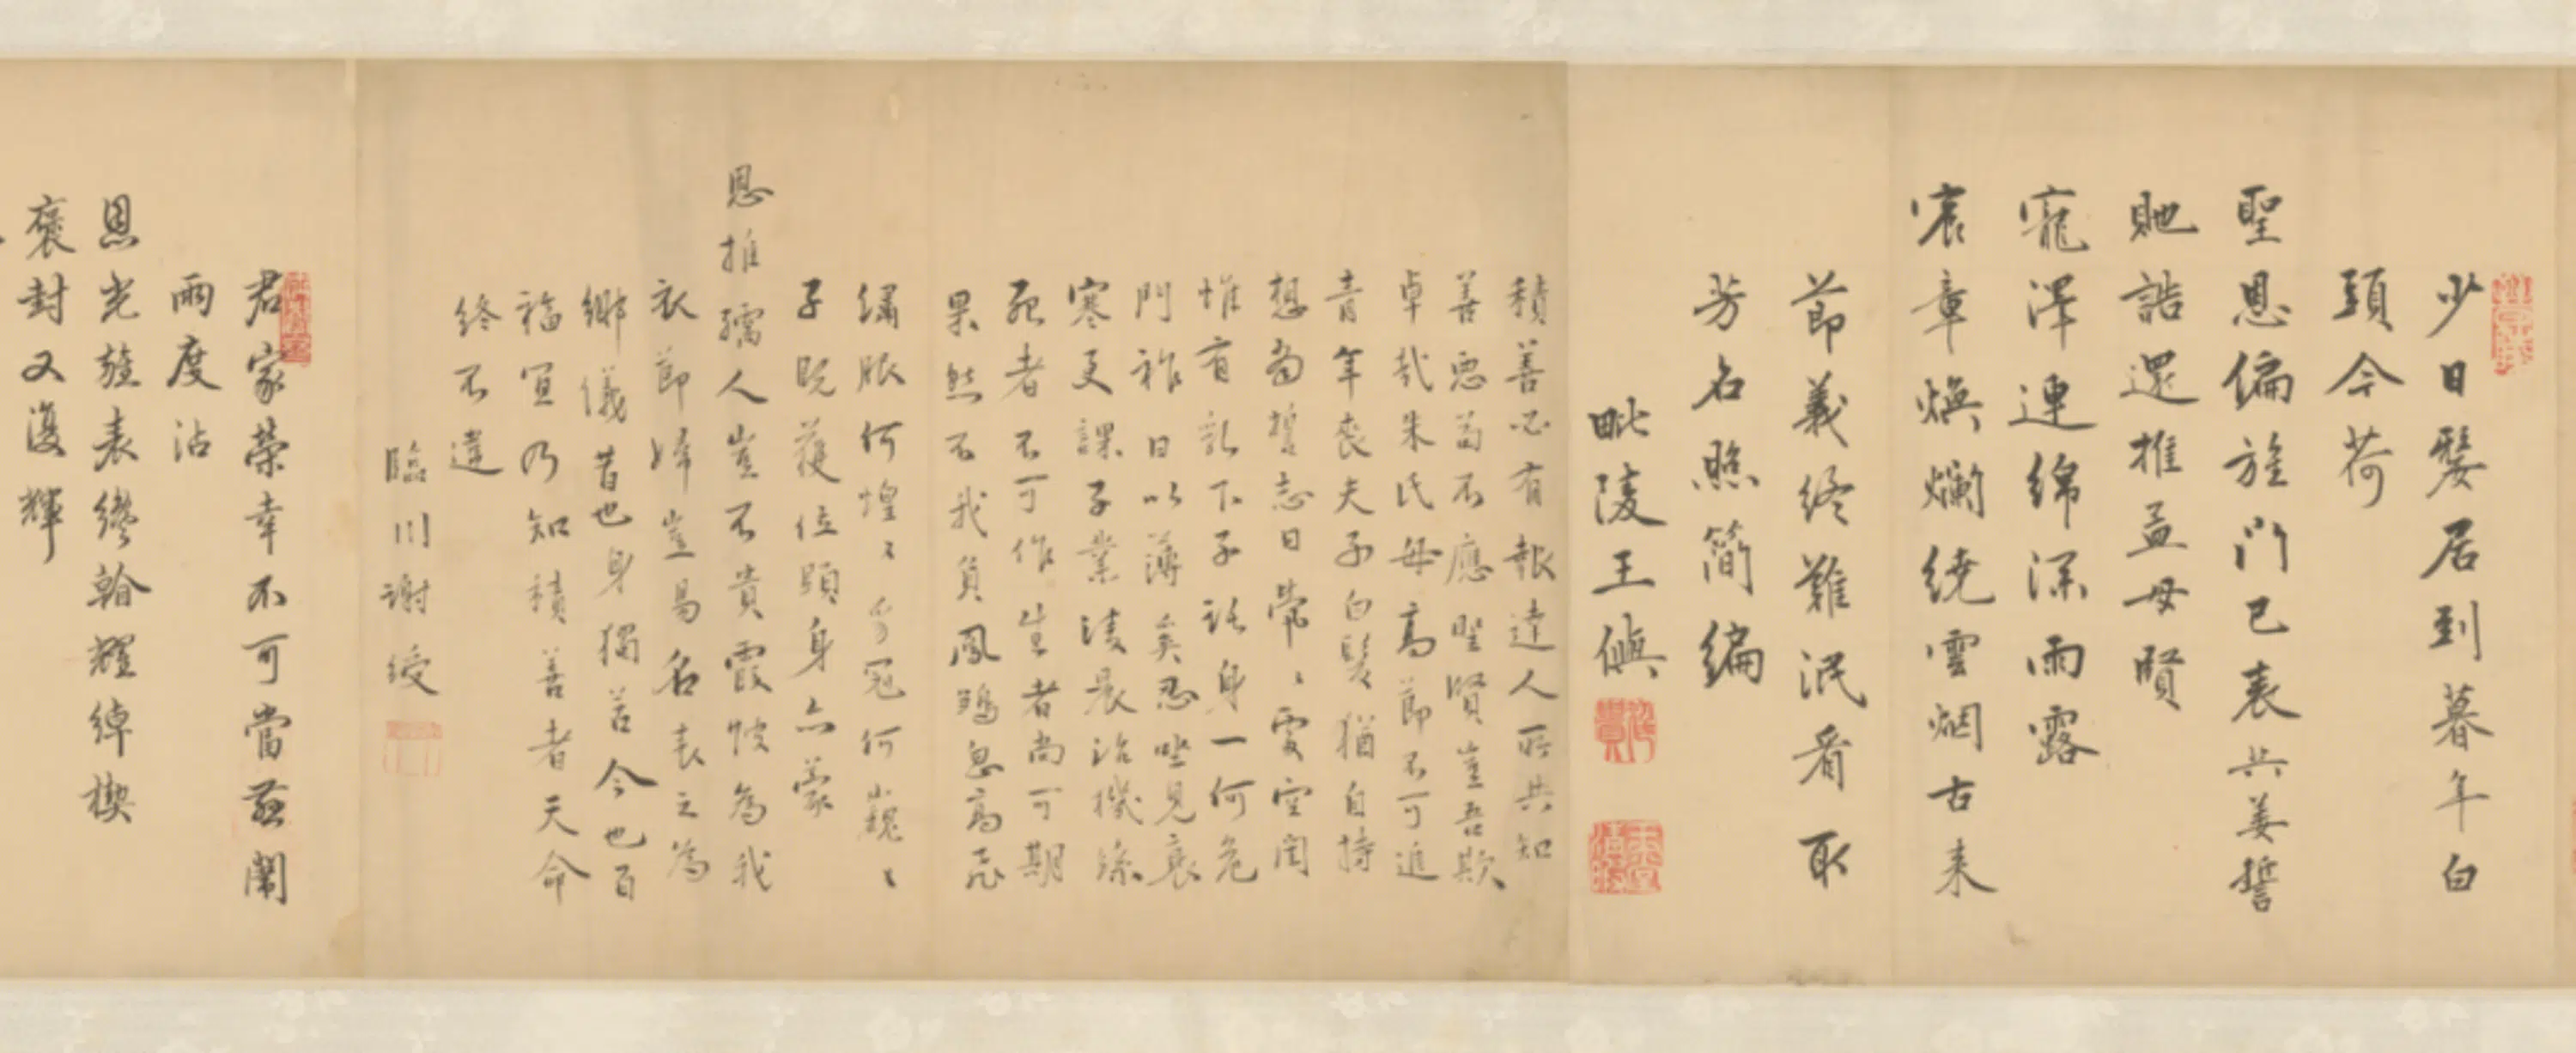 少日嫠居到暮年白
頭今荷
聖恩偏旌門已表共姜誓
貤誥還推孟母賢
寵澤連綿深雨露
宸章煥爛繞雲烟古来
節義終難泯看取
芳名照簡編
毗陵王㒜
積善必有報達人所共知
善惡苟不應聖賢豈吾欺
卓哉朱氏母高節不可追
青年喪夫子白髮猶自持
想當誓志日煢〻處空閨
惟有膝下子託身一何危
門祚日以薄矣忍坐見衰
寒更課子業淩晨治機絲
死者不可作生者尚可期
果然不我負鳳鴻息高飛
繡服何煌〻豸冠何巍〻
子既獲位顯身亦蒙
恩推孺人豈不貴霞帔為我
衣節婦豈易名表之為
鄉儀昔也身獨苦今也百
福宜乃知積善者天命
終不違
臨川謝綬
君家榮幸不可當萱闈
兩度沾
恩光旌表纔翰耀綽楔
褒封又復輝